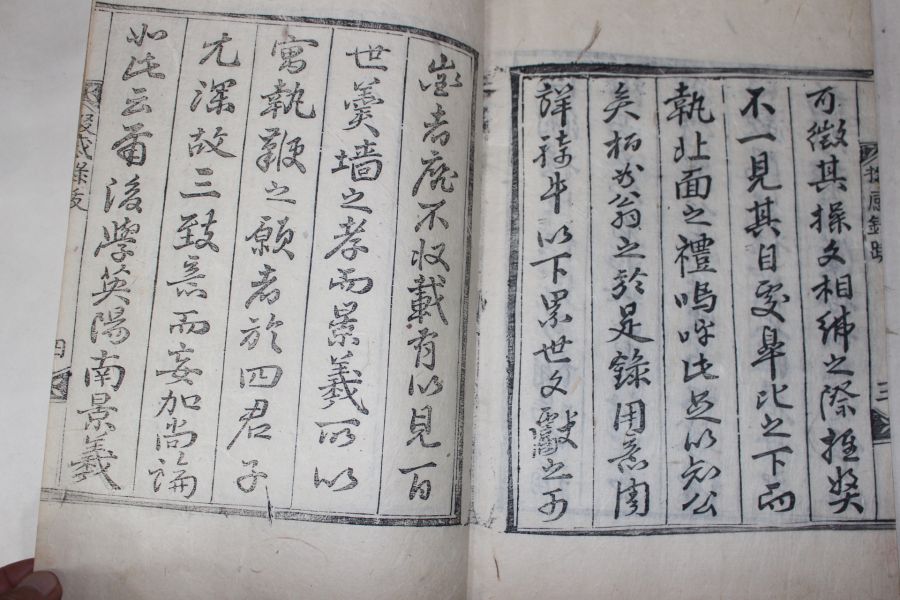 可徵其操文相締之際推奬
不一見其自處皐比之下而
執北面之禮嗚呼此足以知公
矣栢翁之於是錄用意周
詳騎牛以下累世文獻之可
者靡不収載有以見百
世羹墻之孝而景羲所以
寓執鞭之願者於四君子
尤深故三致意而妄加尚論
如此云爾後學英陽南景羲
四
三